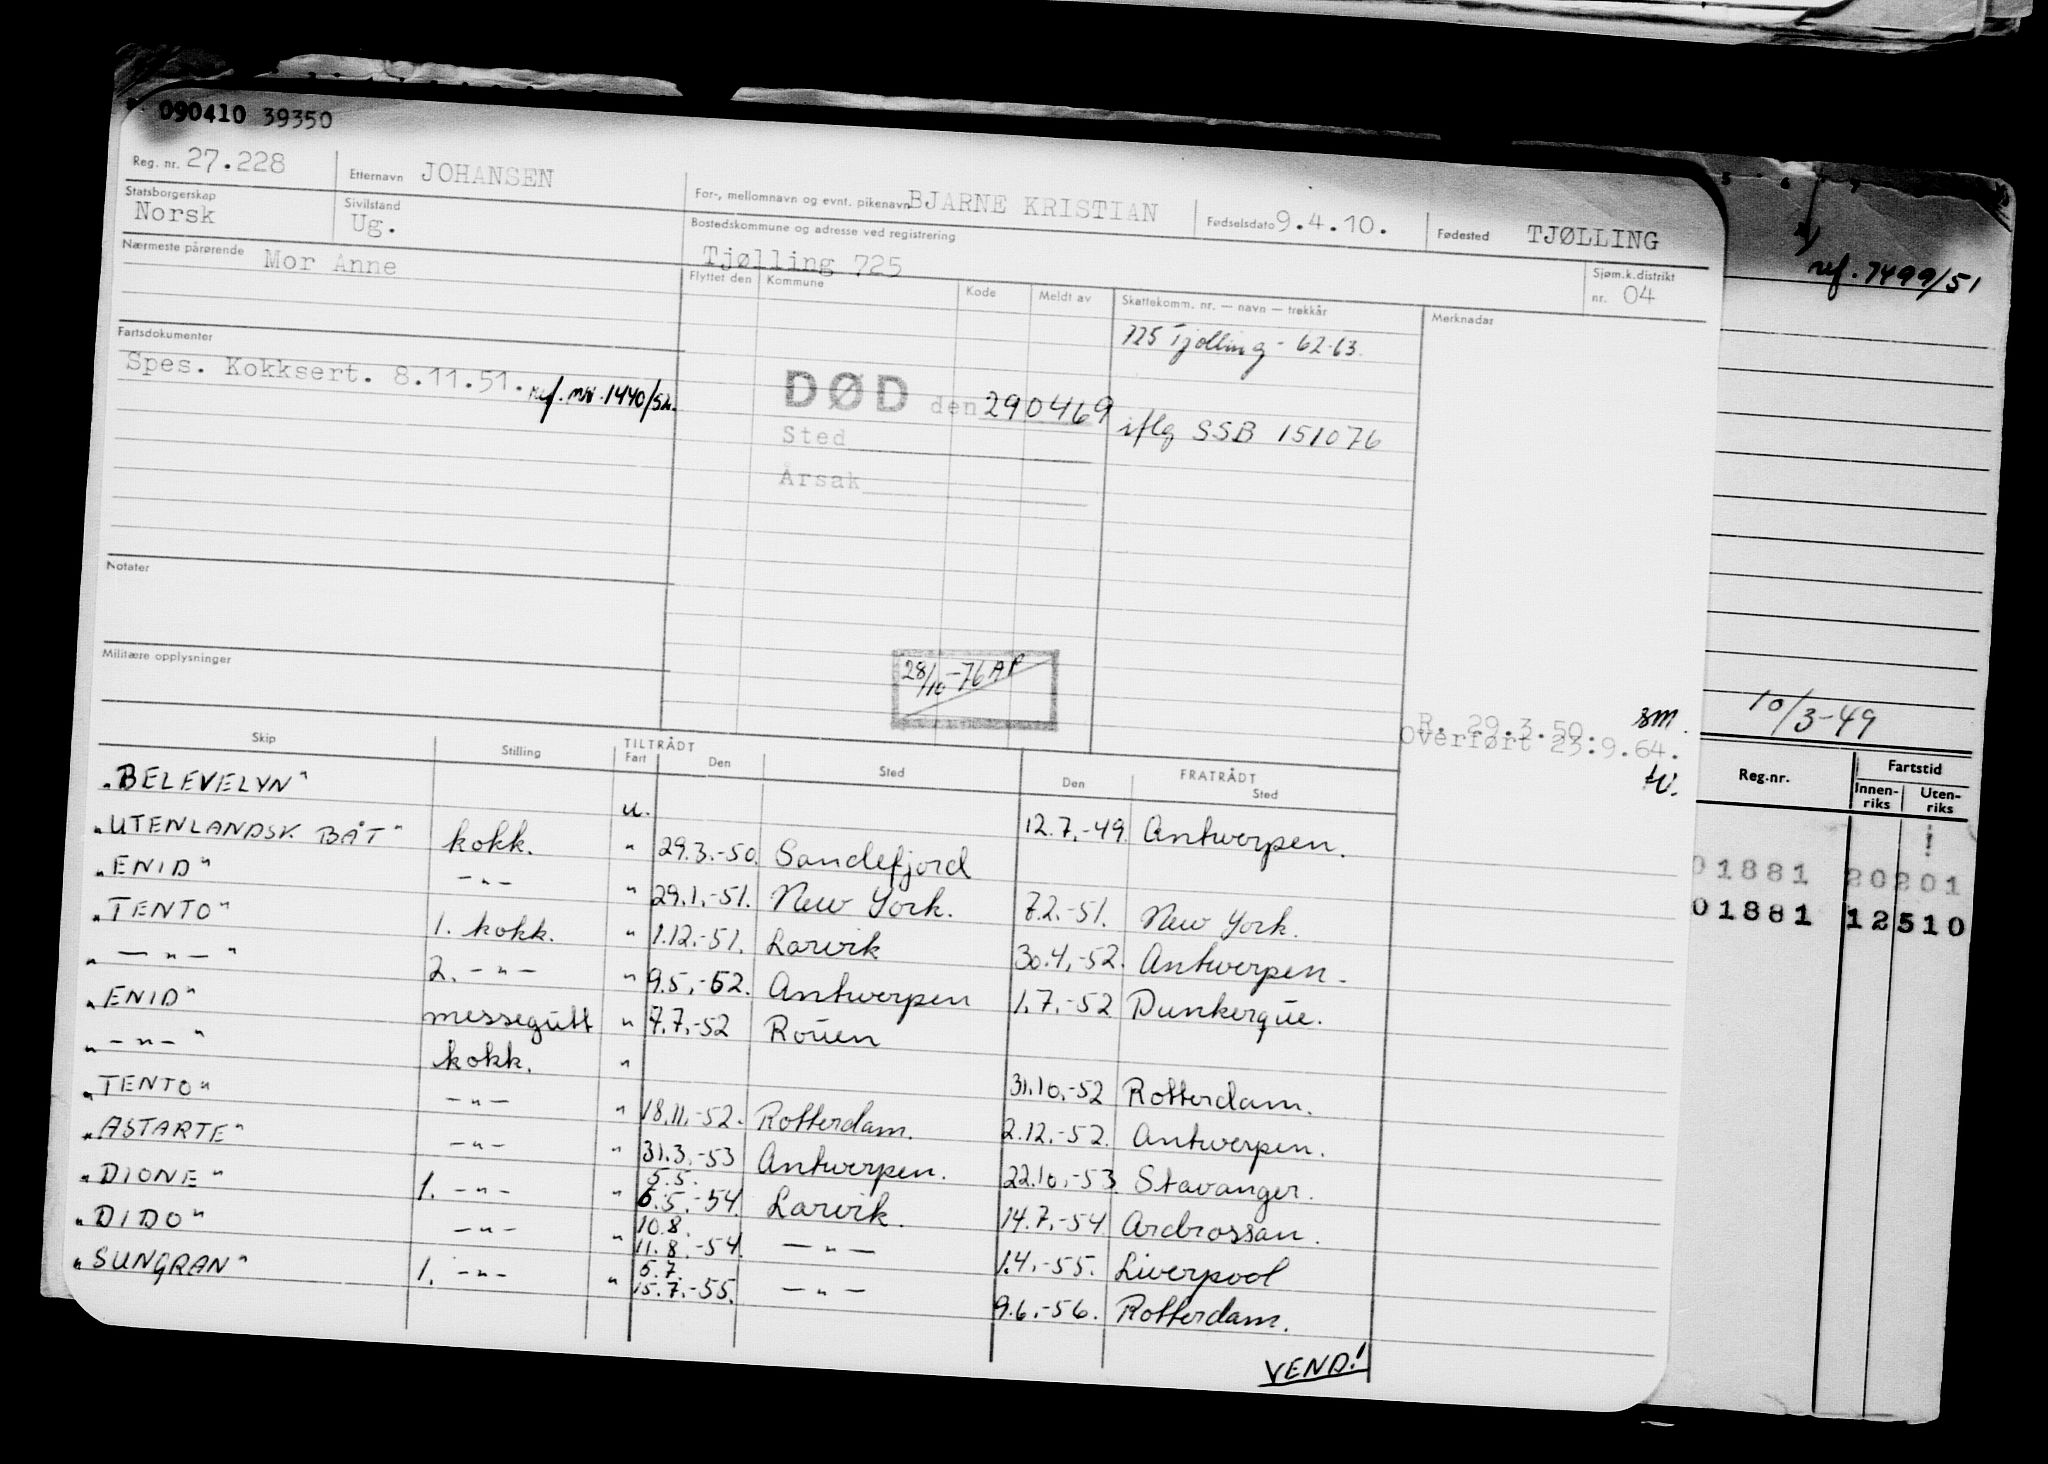 090410 39350
Reg. nr. 27.228 Etternavn JOHANSEN For-, mellomnavn og evnt. pikenavn BJARNE KRISTIAN Fødselsdato 9.4.10. Fødested TJØLLING
Statsborgerskap Norsk Sivilstand Ug. Bostedskommune og adresse ved registrering Tjølling 725 Sjøm.k.distrikt nr. 04
Nærmeste pårørende Mor Anne
Flyttet den Kommune Kode Meldt av Skattekomm. nr. — navn — trekkår Merknader
725 Tjølling - 62-63.
Fartsdokumenter
Spes. Kokksert. 8.11.51. ref. mr. 1440/52.
DØD den 290469 iflg SSB 151076
Sted
Årsak
Notater
Militære opplysninger
28/10-76 AP
R. 29.3.50. sm.
Overført 23.9.64.
Skip Stilling TILTRÅDT FRATRÅDT
Fart Den Sted Den Sted
"BELEVELYN" u. 12.7.-49. Antwerpen.
"UTENLANDSK BÅT" kokk. " 29.3.-50. Sandefjord
"ENID" -"- " 29.1.-51. New York. 7.2.-51. New York.
"TENTO" 1. kokk. " 1.12.-51. Larvik 30.4.-52. Antwerpen.
"-"-" 2. -"- " 9.5.-52. Antwerpen 1.7.-52 Dunkerque.
"ENID" messegutt " 7.7.-52 Rouen
"-"-" kokk. " 31.10.-52 Rotterdam.
"TENTO" -"- " 18.11.-52. Rotterdam. 2.12.-52. Antwerpen.
"ASTARTE" -"- " 31.3.-53 Antwerpen. 22.10.-53. Stavanger.
5.5.
"DIONE" 1. -"- " 6.5.-54. Larvik. 14.7.-54 Ardrossan.
10.8.
"DIDO" -"- " 11.8.-54. -"- 1.4.-55. Liverpool
6.7.
"SUNGRAN" 1. -"- " 15.7.-55. -"- 9.6.-56. Rotterdam.
VEND!
ref. 7499/51
10/3-49
Reg.nr. Fartstid
Innen-riks Uten-riks
01881 20201
01881 12510